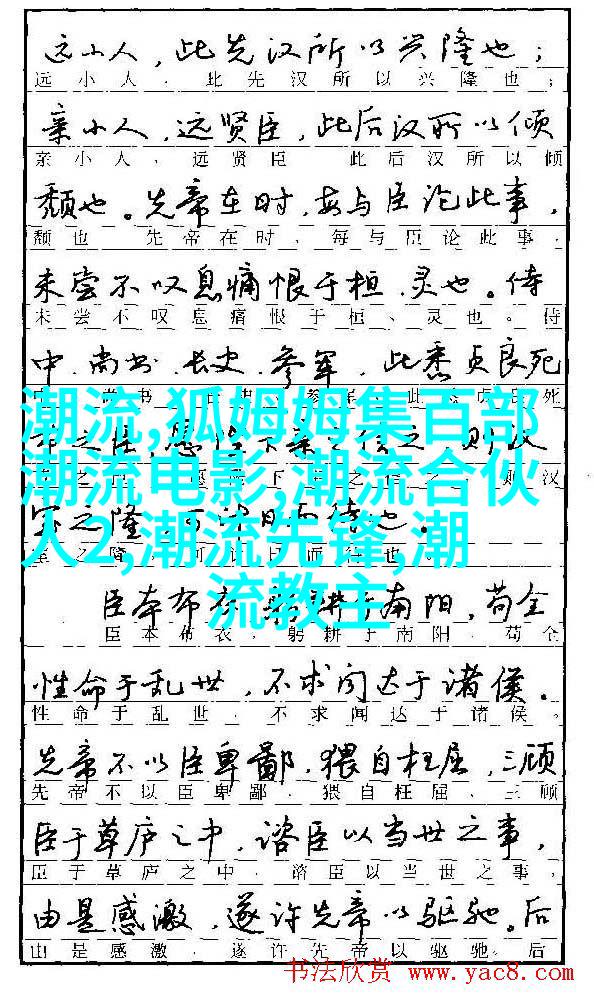 远小人，此先汉所以兴隆也；
远小人，此先汉所以兴隆也；
亲小人，远贤臣，此后汉所以倾
亲小人，远贤臣 此后汉所以倾
颓也。先帝在时，每与臣论此事，
颓也 先帝在时，每与臣论此事，
未尝不叹息痛恨于桓、灵也。侍
未尝不叹息痛恨于桓、灵也。侍
中、尚书、长史、参军，此悉贞良死
潮流,狐姆姆集百部
潮流电影,潮流合伙
人2,潮流先锋,潮
流教主
臣本布衣 躬耕于南阳，苟全
臣本布衣，躬耕于南阳，苟全
性命于乱世，不求闻达于诸侯。
性命于乱世，不求闻达于诸侯。
先帝不以臣卑鄙，猥自枉屈，三顾
先帝不以臣卑鄙，猥自枉屈，三顾
臣于草庐之中，谘臣以当世之事，
臣于草庐之中，谘臣以当世之事，
由是感激，遂许先帝以驱驰。后
由是感激，遂许先帝以驱驰。后
书法欣赏 www.yac8.com